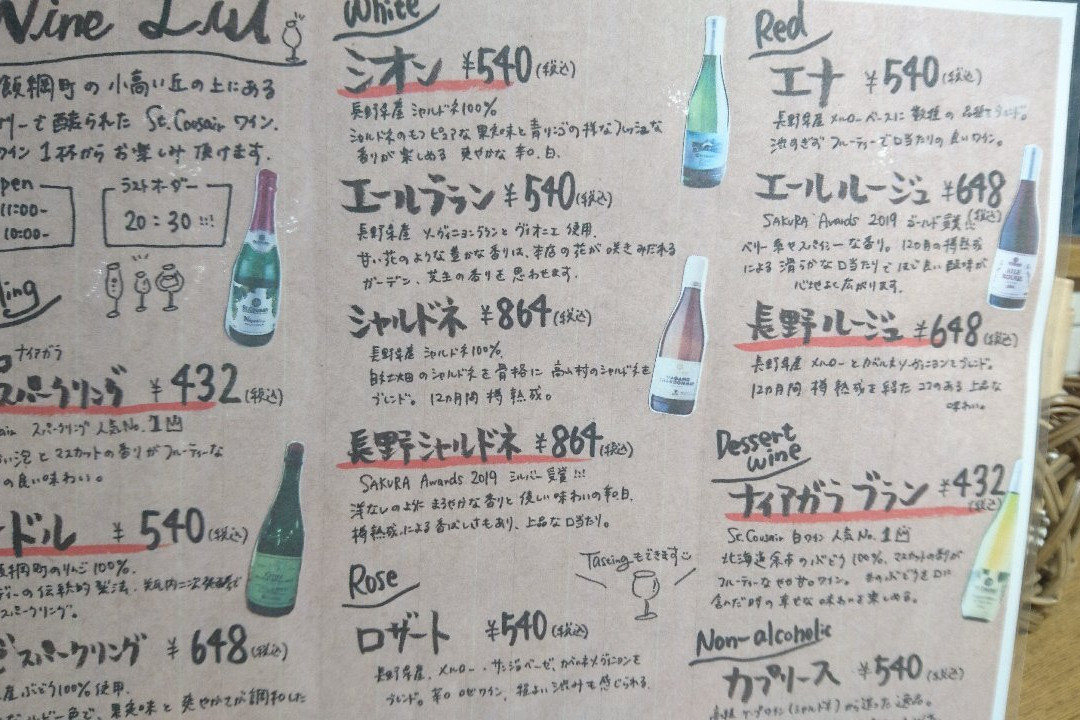 Wine List
飯綱町の小高い丘の上にある
で醸られた St.Cousair ワイン.
ワイン 1杯からお楽しみ頂けます.
11:00-
10:00-
ラストオーダー
20:30 !!!
ナイアガラ
スパークリング ¥432(税込)
スパークリング 人気No.1
泡とマスカットの香りがフルーティーな
の良い味わい。
ドル ¥540(税込)
飯綱町のりんご100%.
の伝統的製法.
スパークリング。
スパークリング ¥648(税込)
産ぶどう100%使用.
色で、果実味と爽やかさが調和した
White
シオン ¥540(税込)
長野県産シャルドネ100%
シャルドネのもつピュアな果実味と青りんごの様なフレッシュな
香りが楽しめる 爽やかな辛口.白.
エールブラン ¥540(税込)
長野県産 ソーヴィニヨンブランとヴィオニエ使用.
甘い花のような豊かな香りは、本店の花が咲きみだれる
ガーデン、芝生の香りを思わせます.
シャルドネ ¥864(税込)
長野県産 シャルドネ100%.
自社畑のシャルドネを骨格に高山村のシャルドネを
ブレンド。12カ月間 樽熟成。
長野シャルドネ ¥864(税込)
SAKURA Awards 2019 シルバー受賞!!!
洋なしのようにまろやかな香りと優しい味わいの辛口.
樽熟成による香ばしさもあり、上品な口当たり。
Tastingもできます
Rose
ロザート ¥540(税込)
長野県産.メルロー・サンジョベーゼ、カベルネソーヴィニヨンを
ブレンド。辛口ロゼワイン.程よい渋みも感じられる.
Red
エナ ¥540(税込)
長野県産メルローベースに数種の品種をブレンド。
渋すぎず フルーティーで口当たりの良いワイン。
エールルージュ ¥648(税込)
SAKURA Awards 2019 ゴールド受賞!!
ベリー系やスパイシーな香り。12カ月の樽熟成
による滑らかな口当たりでほど良い酸味が
心地よく広がります。
AILE ROUGE
長野ルージュ ¥648(税込)
長野県産 メルローとカベルネソーヴィニヨンをブレンド。
12カ月間 樽熟成を経た コクのある上品な
味わい。
Dessert wine
ナイアガラブラン ¥432(税込)
St.Cousair 白ワイン 人気No.1
北海道余市のぶどう100%、マスカットの香りが
フルーティーなやや甘口ワイン。生のぶどうを口に
含んだ時の幸せな味わいを楽しめる。
Non-alcoholic
カプリース ¥540(税込)